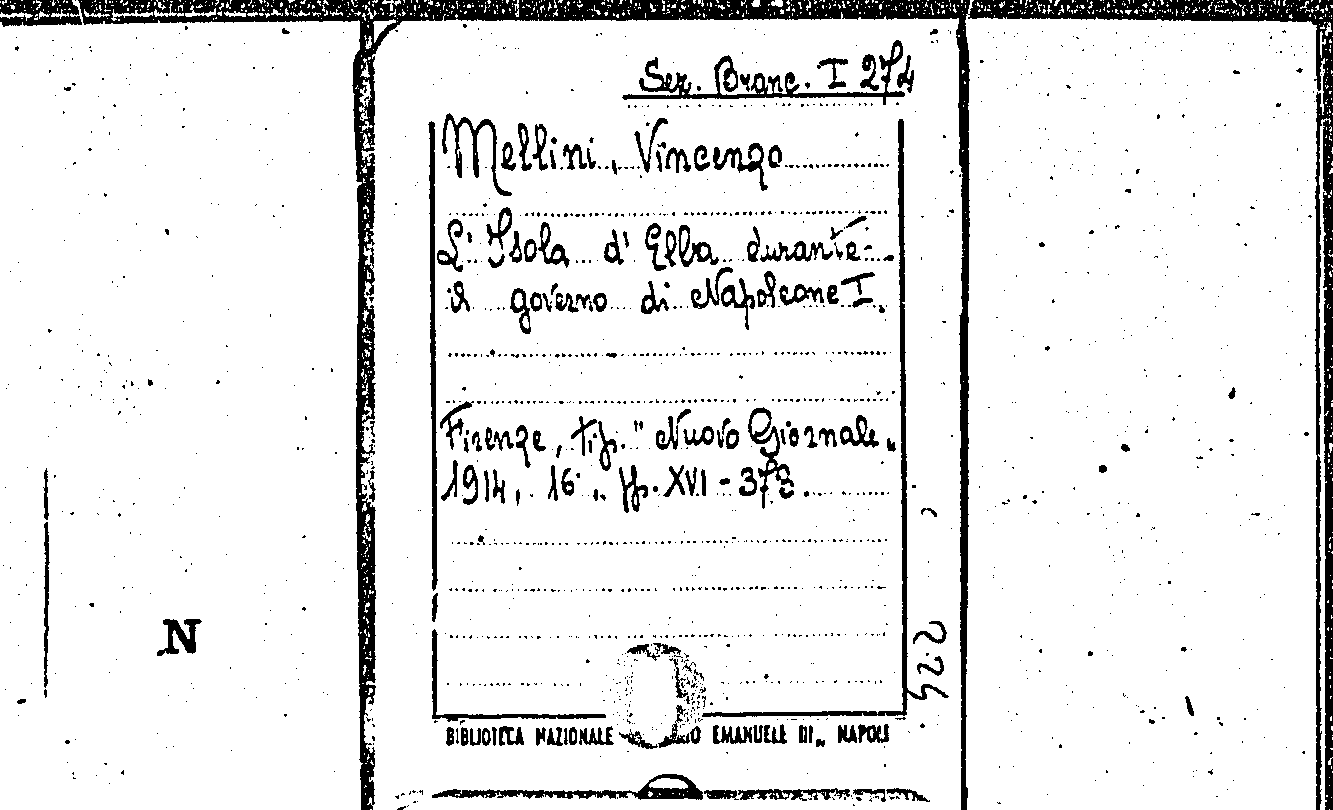 Sez. Branc. I 274
Mellini, Vincenzo
L'Isola d'Elba durante
il governo di Napoleone I.
Firenze, tip. "Nuovo Giornale„
1914, 16°, pp. XVI - 373.
N
BIBLIOTECA NAZIONALE EMANUELE III„ NAPOLI